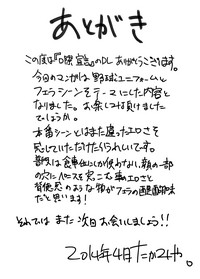 あとがき
この度は『口腔宣言』のDLありがとうございます。
今回のマンガは野球ユニフォームと
フェラシーンをテーマにした内容と
なりました。お楽しみ頂けました
でしょうか。
本番シーンとはまた違ったエロさを
感じていただけたらうれしいです。
普段は食事にしか使わない顔の一部
の穴に入れる、という事のエロさと
背徳感のような物がフェラの醍醐味
だと思います!
それでは また次回お会いしましょう!!
2014年4日